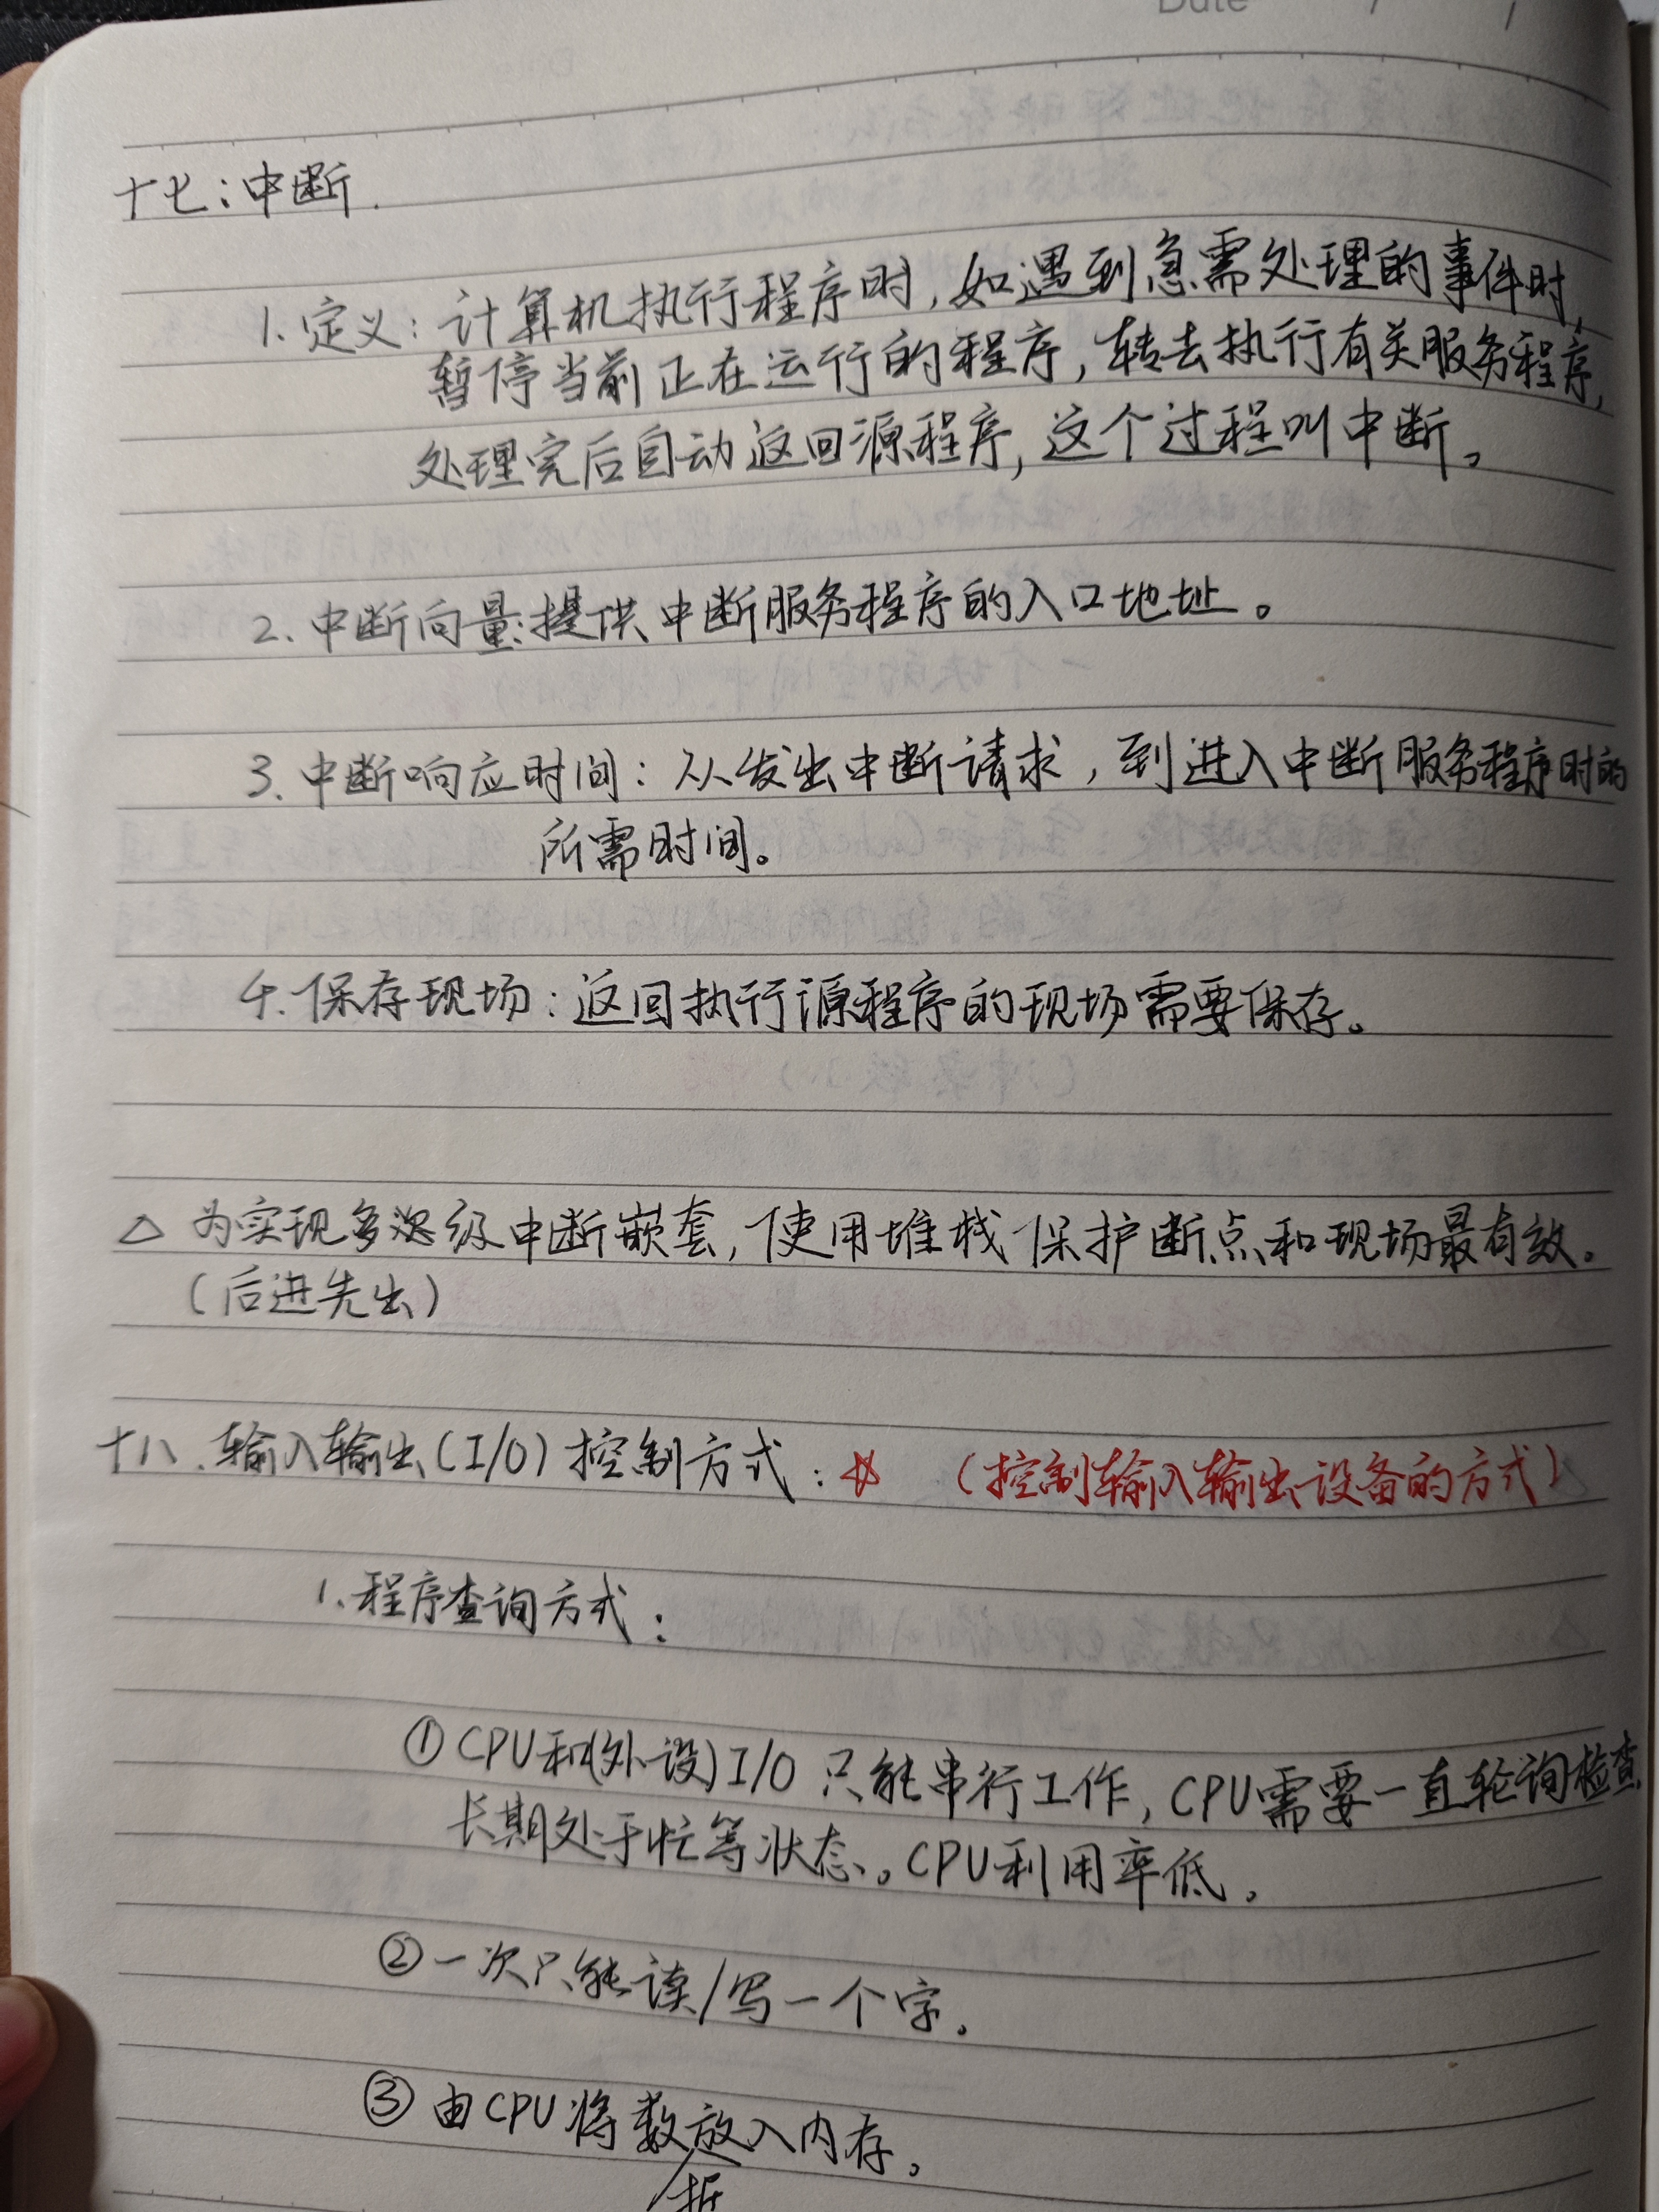 Date / /
十七:中断.
1.定义:计算机执行程序时,如遇到急需处理的事件时,
暂停当前正在运行的程序,转去执行有关服务程序,
处理完后自动返回源程序,这个过程叫中断。
2.中断向量:提供中断服务程序的入口地址。
3.中断响应时间:从发出中断请求,到进入中断服务程序时的
所需时间。
4.保存现场:返回执行源程序的现场需要保存。
△ 为实现多级中断嵌套,使用堆栈保护断点和现场最有效。
(后进先出)
十八.输入输出(I/O)控制方式:☆ (控制输入输出设备的方式)
1.程序查询方式:
①CPU和(外设)I/O只能串行工作,CPU需要一直轮询检查
长期处于忙等状态。CPU利用率低。
②一次只能读/写一个字。
③由CPU将数放入内存。
据